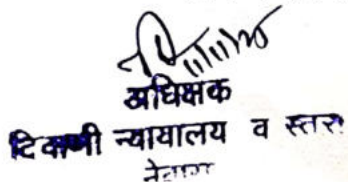 अधिक्षक
दिवाणी न्यायालय व स्तर